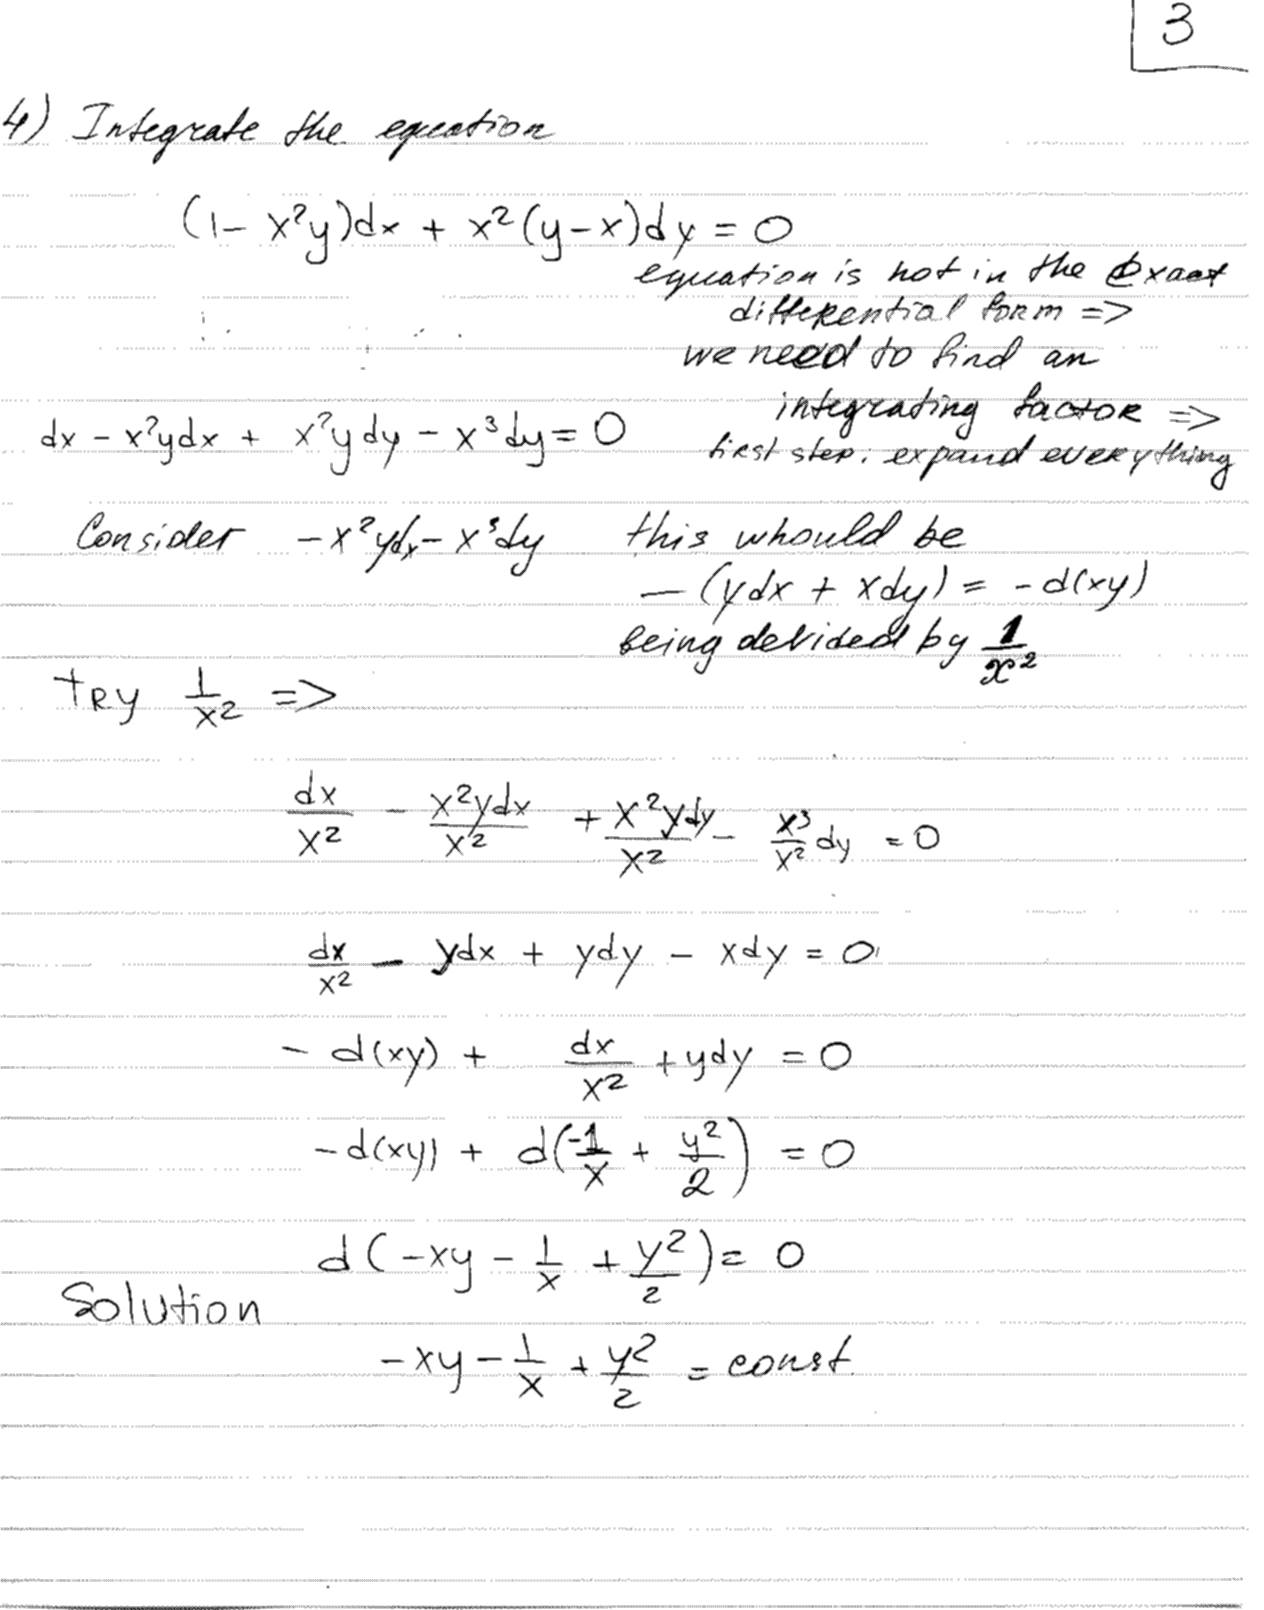 3
4) Integrate the equation
(1 - x²y)dx + x²(y-x)dy = 0
equation is not in the exact
differential form =>
we need to find an
integrating factor =>
dx - x²ydx + x²ydy - x³dy = 0
first step: expand everything
Consider -x²ydx - x³dy this whould be
- (ydx + xdy) = -d(xy)
being devided by 1/x²
try 1/x² =>
dx/x² - x²ydx/x² + x²ydy/x² - x³/x² dy = 0
dx/x² - ydx + ydy - xdy = 0
- d(xy) + dx/x² + ydy = 0
-d(xy) + d(-1/x + y²/2) = 0
d(-xy - 1/x + y²/2) = 0
Solution
-xy - 1/x + y²/2 = const.